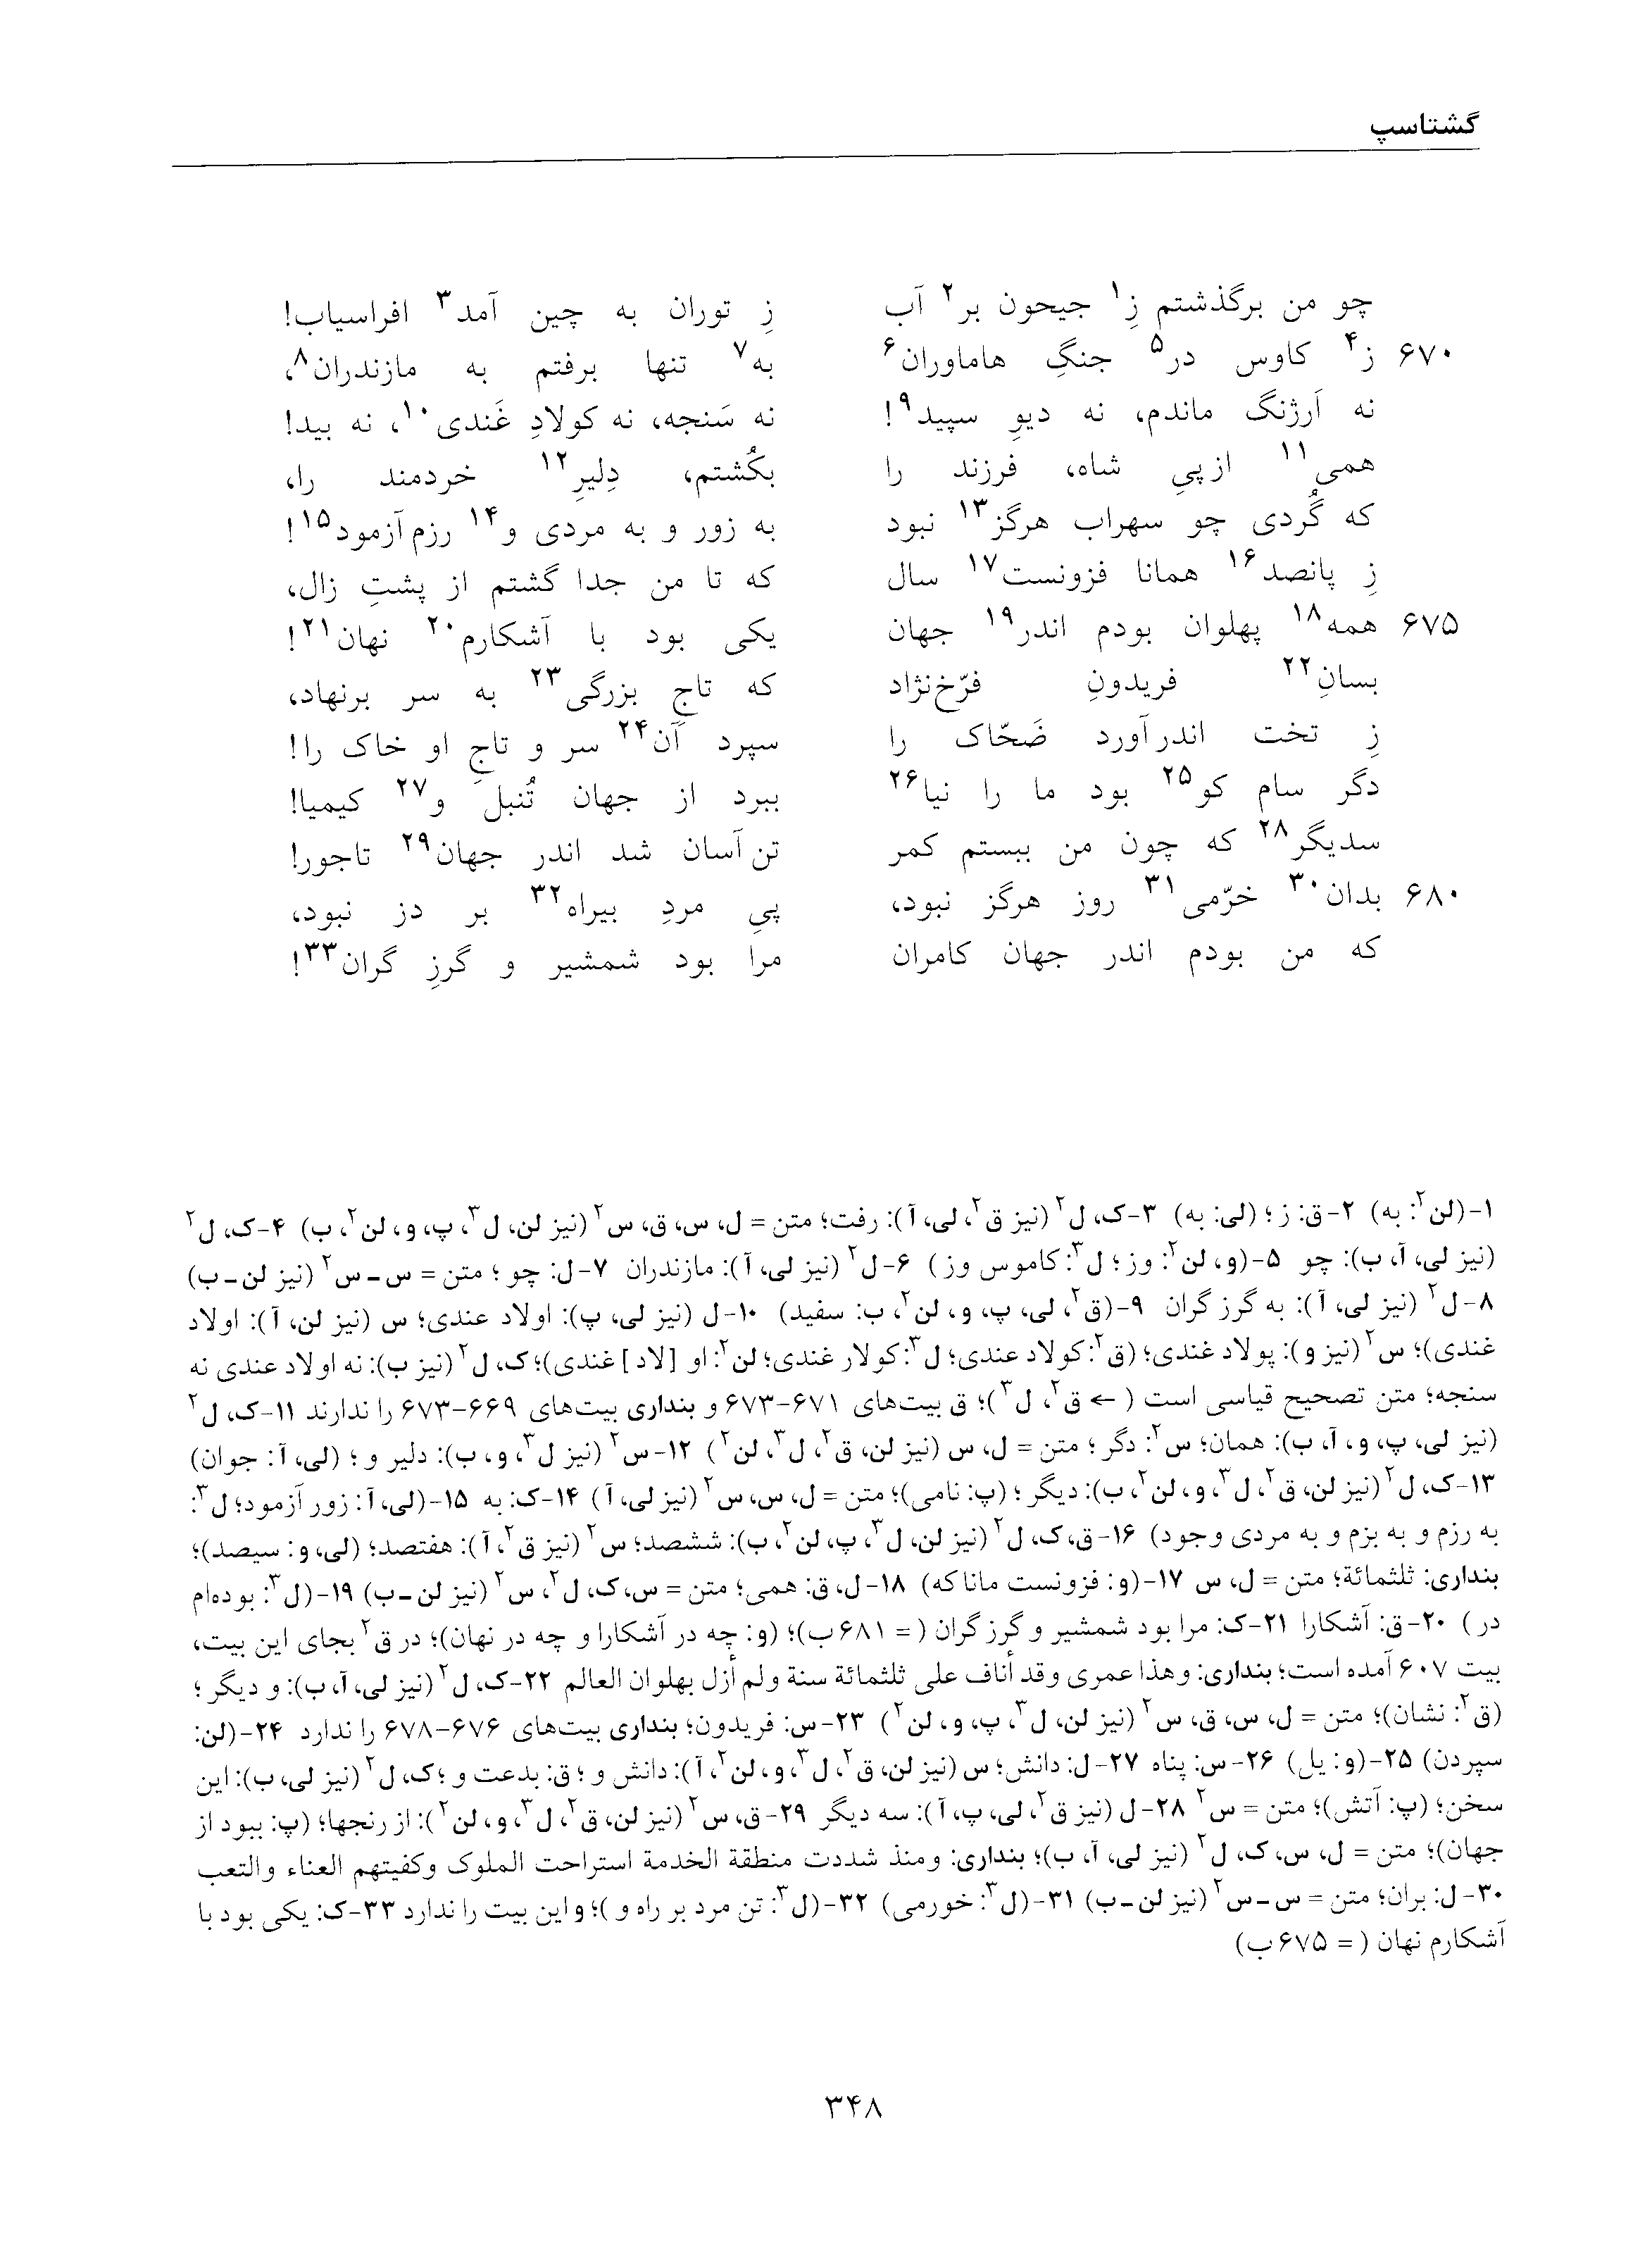 گشتاسپ
چو من برگذشتم زِ۱ جیحون بر۲ آب زِ توران به چین آمد۳ افراسیاب!
۶۷۰ ز۴ کاوس در۵ جنگِ هاماوران۶ به۷ تنها برفتم به مازندران۸،
نه اَرژنگ ماندم، نه دیوِ سپید۹! نه سَنجه، نه کولادِ غَندی۱۰، نه بید!
همی۱۱ ازپیِ شاه، فرزند را بکُشتم، دِلیرِ۱۲ خردمند را،
که گُردی چو سهراب هرگز۱۳ نبود به زور و به مردی و۱۴ رزم‌آزمود۱۵!
زِ پانصد۱۶ همانا فزونست۱۷ سال که تا من جدا گشتم از پشتِ زال،
۶۷۵ همه۱۸ پهلوان بودم اندر۱۹ جهان یکی بود با آشکارم۲۰ نهان۲۱!
بسانِ۲۲ فریدونِ فرّخ‌نژاد که تاجِ بزرگی۲۳ به سر برنهاد،
زِ تخت اندرآورد ضَحّاک را سپرد آن۲۴ سر و تاجِ او خاک را!
دگر سام کو۲۵ بود ما را نیا۲۶ ببرد از جهان تُنبل و۲۷ کیمیا!
سدیگر۲۸ که چون من ببستم کمر تن‌آسان شد اندر جهان۲۹ تاجور!
۶۸۰ بدان۳۰ خرّمی۳۱ روز هرگز نبود، پیِ مردِ بیراه۳۲ بر دز نبود،
که من بودم اندر جهان کامران مرا بود شمشیر و گرزِ گران۳۳!
۱-(لن۲: به) ۲-ق: ز؛ (لی: به) ۳-ک، ل۲ (نیز ق۲، لی، آ): رفت؛ متن = ل، س، ق، س۲ (نیز لن، ل۳، پ، و، لن۲، ب) ۴-ک، ل۲
(نیز لی، آ، ب): چو ۵-(و، لن۲: وز؛ ل۳: کاموس وز) ۶-ل۲ (نیز لی، آ): مازندران ۷-ل: چو؛ متن = س-س۲ (نیز لن-ب)
۸-ل۲ (نیز لی، آ): به گرز گران ۹-(ق۲، لی، پ، و، لن۲، ب: سفید) ۱۰-ل (نیز لی، پ): اولاد عندی؛ س (نیز لن، آ): اولاد
غندی)؛ س۲ (نیز و): پولاد غندی؛ (ق۲: کولاد عندی؛ ل۳: کولار غندی؛ لن۲: او [لاد] غندی)؛ ک، ل۲ (نیز ب): نه اولاد عندی نه
سنجه؛ متن تصحیح قیاسی است (← ق۲، ل۳)؛ ق بیت‌های ۶۷۱-۶۷۳ و بنداری بیت‌های ۶۶۹-۶۷۳ را ندارند ۱۱-ک، ل۲
(نیز لی، پ، و، آ، ب): همان؛ س۲: دگر؛ متن = ل، س (نیز لن، ق۲، ل۳، لن۲) ۱۲-س۲ (نیز ل۳، و، ب): دلیر و؛ (لی، آ: جوان)
۱۳-ک، ل۲ (نیز لن، ق۲، ل۳، و، لن۲، ب): دیگر؛ (پ: نامی)؛ متن = ل، س، س۲ (نیز لی، آ) ۱۴-ک: به ۱۵-(لی، آ: زور آزمود؛ ل۳:
به رزم و به بزم و به مردی وجود) ۱۶-ق، ک، ل۲ (نیز لن، ل۳، پ، لن۲، ب): ششصد؛ س۲ (نیز ق۲، آ): هفتصد؛ (لی، و: سیصد)؛
بنداری: ثلثمائة؛ متن = ل، س ۱۷-(و: فزونست مانا که) ۱۸-ل، ق: همی؛ متن = س، ک، ل۲، س۲ (نیز لن-ب) ۱۹-(ل۳: بوده‌ام
در) ۲۰-ق: آشکارا ۲۱-ک: مرا بود شمشیر و گرز گران (= ۶۸۱ب)؛ (و: چه در آشکارا و چه در نهان)؛ در ق۲ بجای این بیت،
بیت ۶۰۷ آمده است؛ بنداری: وهذا عمری وقد أناف علی ثلثمائة سنة ولم أزل بهلوان العالم ۲۲-ک، ل۲ (نیز لی، آ، ب): و دیگر؛
(ق۲: نشان)؛ متن = ل، س، ق، س۲ (نیز لن، ل۳، پ، و، لن۲) ۲۳-س: فریدون؛ بنداری بیت‌های ۶۷۶-۶۷۸ را ندارد ۲۴-(لن:
سپردن) ۲۵-(و: یل) ۲۶-س: پناه ۲۷-ل: دانش؛ س (نیز لن، ق۲، ل۳، و، لن۲، آ): دانش و؛ ق: بدعت و؛ ک، ل۲ (نیز لی، ب): این
سخن؛ (پ: آتش)؛ متن = س۲ ۲۸-ل (نیز ق۲، لی، پ، آ): سه دیگر ۲۹-ق، س۲ (نیز لن، ق۲، ل۳، و، لن۲): از رنجها؛ (پ: ببود از
جهان)؛ متن = ل، س، ک، ل۲ (نیز لی، آ، ب)؛ بنداری: ومنذ شددت منطقة الخدمة استراحت الملوک وکفیتهم العناء والتعب
۳۰-ل: بران؛ متن = س-س۲ (نیز لن-ب) ۳۱-(ل۳: خورمی) ۳۲-(ل۳: تن مرد بر راه و)؛ و این بیت را ندارد ۳۳-ک: یکی بود با
آشکارم نهان (= ۶۷۵ب)
۳۴۸